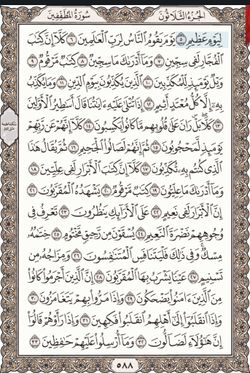 الجزء الثلاثون سورة المطففين
ليوم عظيم ٥ يوم يقوم الناس لرب العالمين ٦ كلا إن كتب
الفجار لفي سجين ٧ وما أدراك ما سجين ٨ كتب مرقوم ٩
ويل يومئذ للمكذبين ١٠ الذين يكذبون بيوم الدين ١١ وما يكذب
به إلا كل معتد أثيم ١٢ إذا تتلى عليه ءايتنا قال أسطير الأولين
١٣ كلا بل ران على قلوبهم ما كانوا يكسبون ١٤ كلا إنهم عن ربهم
يومئذ لمحجوبون ١٥ ثم إنهم لصالوا الجحيم ١٦ ثم يقال هذا
الذي كنتم به تكذبون ١٧ كلا إن كتب الأبرار لفي عليين ١٨
وما أدراك ما عليون ١٩ كتب مرقوم ٢٠ يشهده المقربون ٢١
إن الأبرار لفي نعيم ٢٢ على الأرائك ينظرون ٢٣ تعرف في
وجوههم نضرة النعيم ٢٤ يسقون من رحيق مختوم ٢٥ ختمه
مسك وفي ذلك فليتنافس المتنفسون ٢٦ ومزاجه من
تسنيم ٢٧ عينا يشرب بها المقربون ٢٨ إن الذين أجرموا كانوا
من الذين ءامنوا يضحكون ٢٩ وإذا مروا بهم يتغامزون ٣٠
وإذا انقلبوا إلى أهلهم انقلبوا فكهين ٣١ وإذا رأوهم قالوا
إن هؤلاء لضالون ٣٢ وما أرسلوا عليهم حفظين ٣٣
٥٨٨